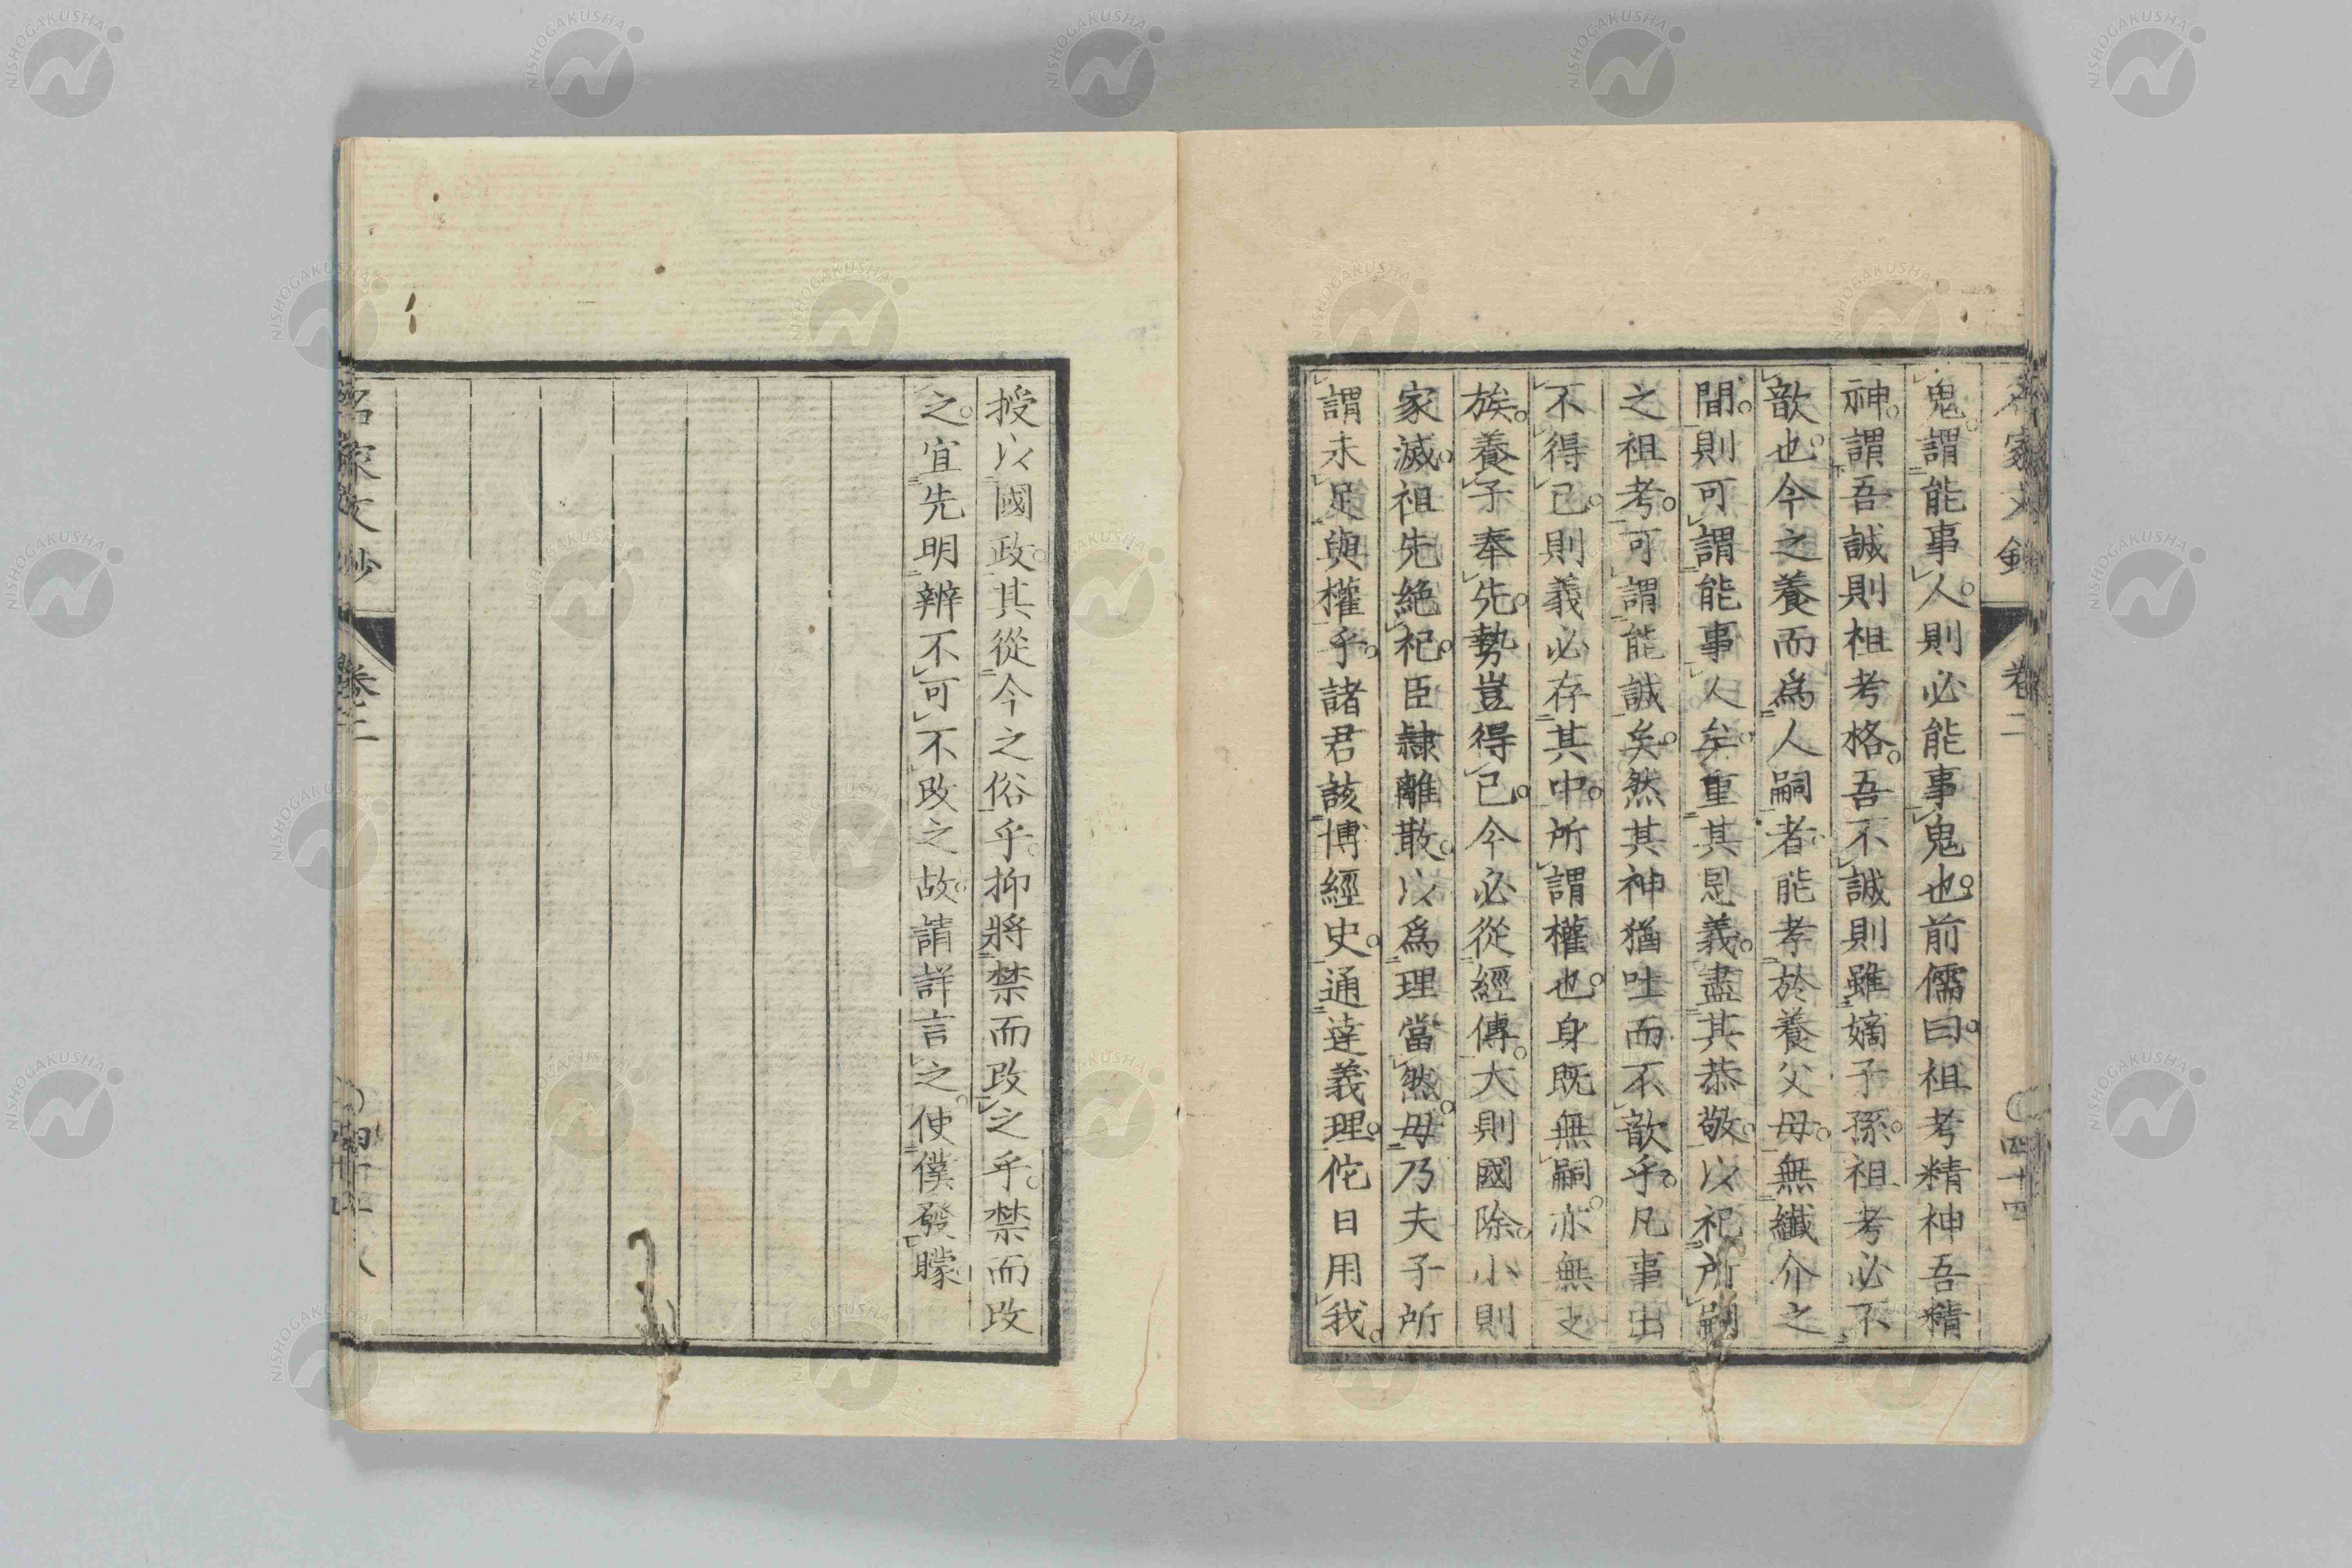 名家文鈔 卷二 四十四
鬼。謂能事人。則必能事鬼也。前儒曰。祖考精神吾精
神。謂吾誠則祖考格。吾不誠則雖嫡子孫。祖考必不
歆也。今之養而爲人嗣者。能孝於養父母。無纖介之
間。則可謂能事人矣。重其恩義。盡其恭敬。以祀所嗣
之祖考。可謂能誠矣。然其神猶吐而不歆乎。凡事出
不得已。則義必存其中。所謂權也。身既無嗣。亦無支
族。養子奉先。勢豈得已。今必從經傳。大則國除。小則
家滅。祖先絶祀。臣隷離散。以爲理當然。毋乃夫子所
謂未足與權乎。諸君該博經史。通達義理。佗日用我。
授以國政。其從今之俗乎。抑將禁而改之乎。禁而改
之。宜先明辨不可不改之故。請詳言之。使僕發矇。
名家文鈔 卷二
NISHOGAKUSHA